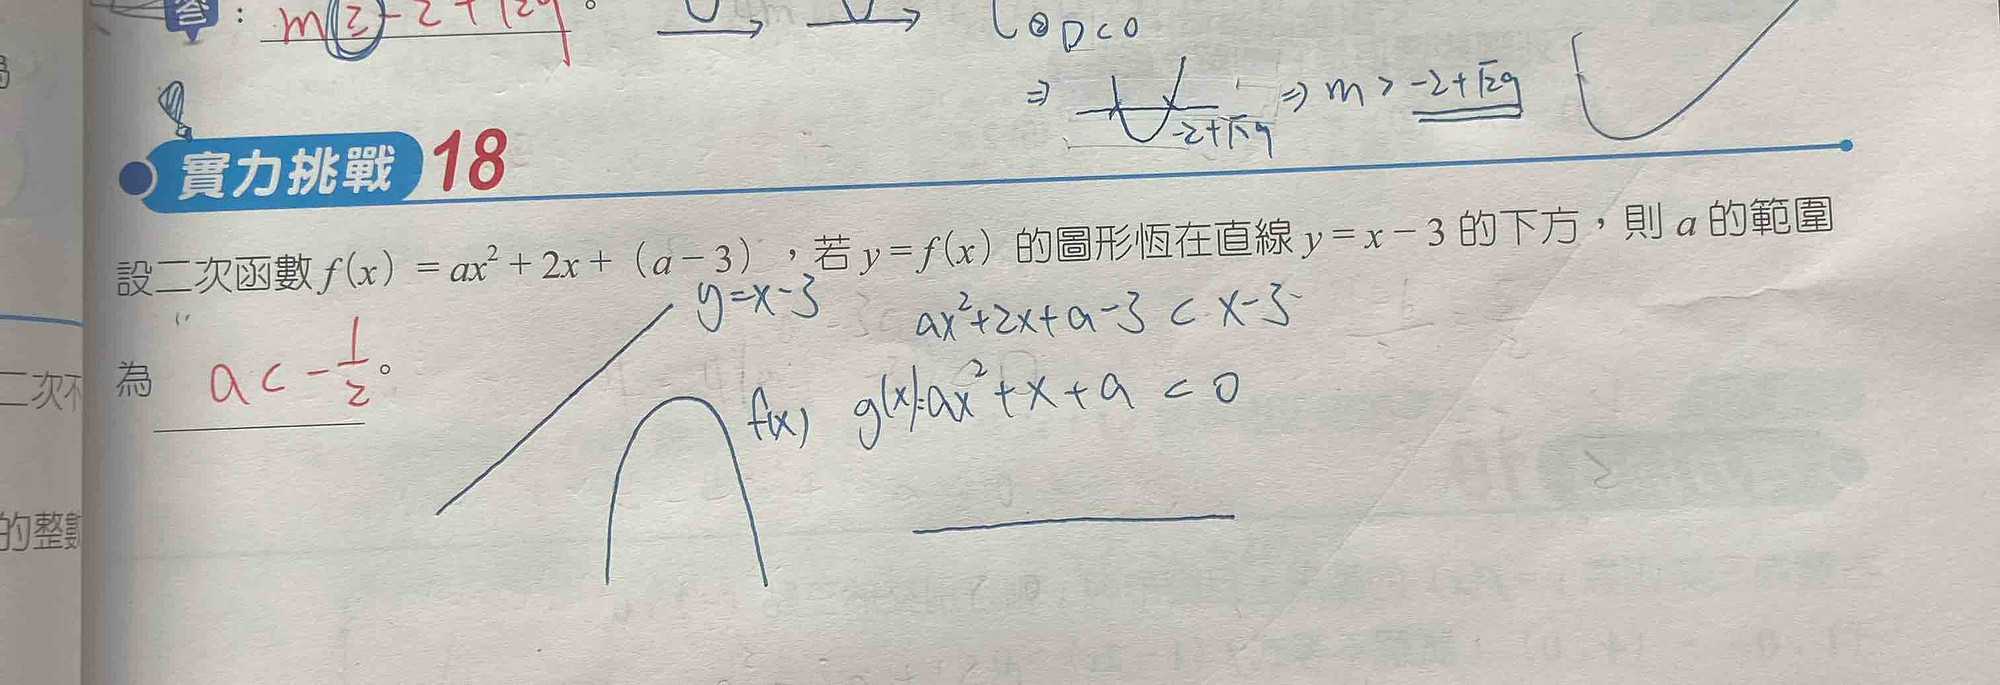 答：m≧-2+√29。
② D<0
⇒ -2+√29 ⇒ m > -2+√29
實力挑戰 18
設二次函數 f(x) = ax² + 2x + (a - 3)，若 y = f(x) 的圖形恆在直線 y = x - 3 的下方，則 a 的範圍
y=x-3 ax²+2x+a-3 < x-3
為 a < -1/2。
二次不
f(x) g(x)=ax²+x+a < 0
的整數